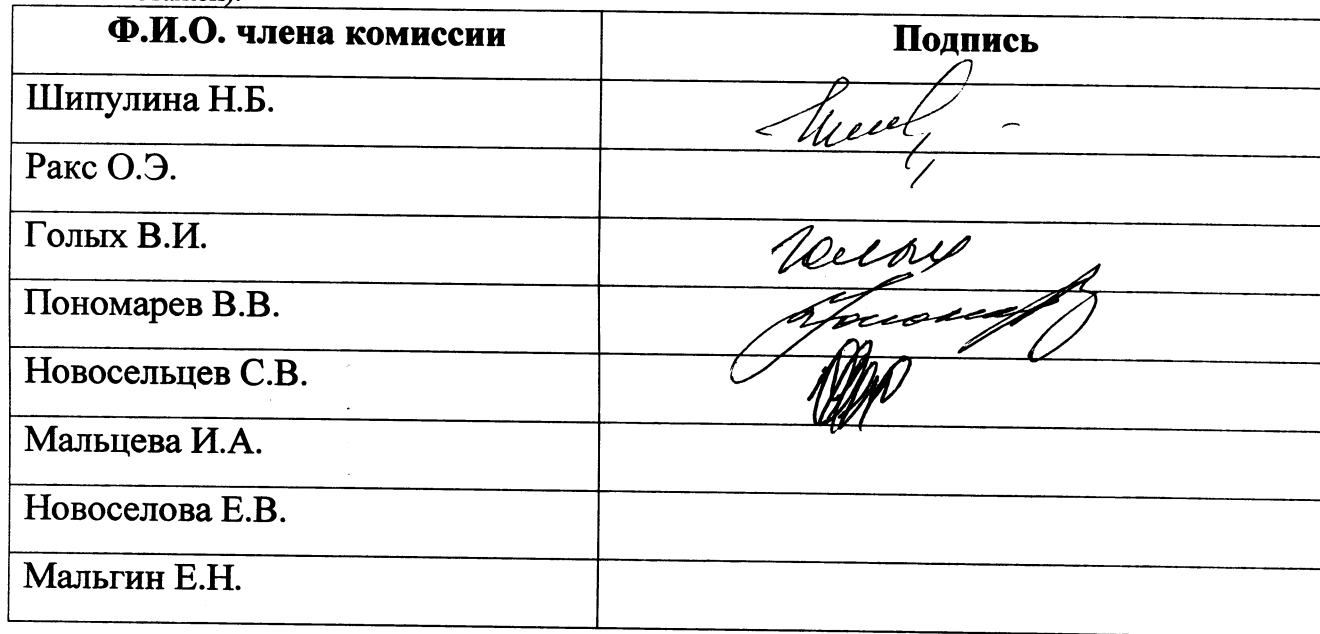 Ф.И.О. члена комиссии Подпись
Шипулина Н.Б.
Ракс О.Э.
Голых В.И. Голых
Пономарев В.В.
Новосельцев С.В.
Мальцева И.А.
Новоселова Е.В.
Мальгин Е.Н.